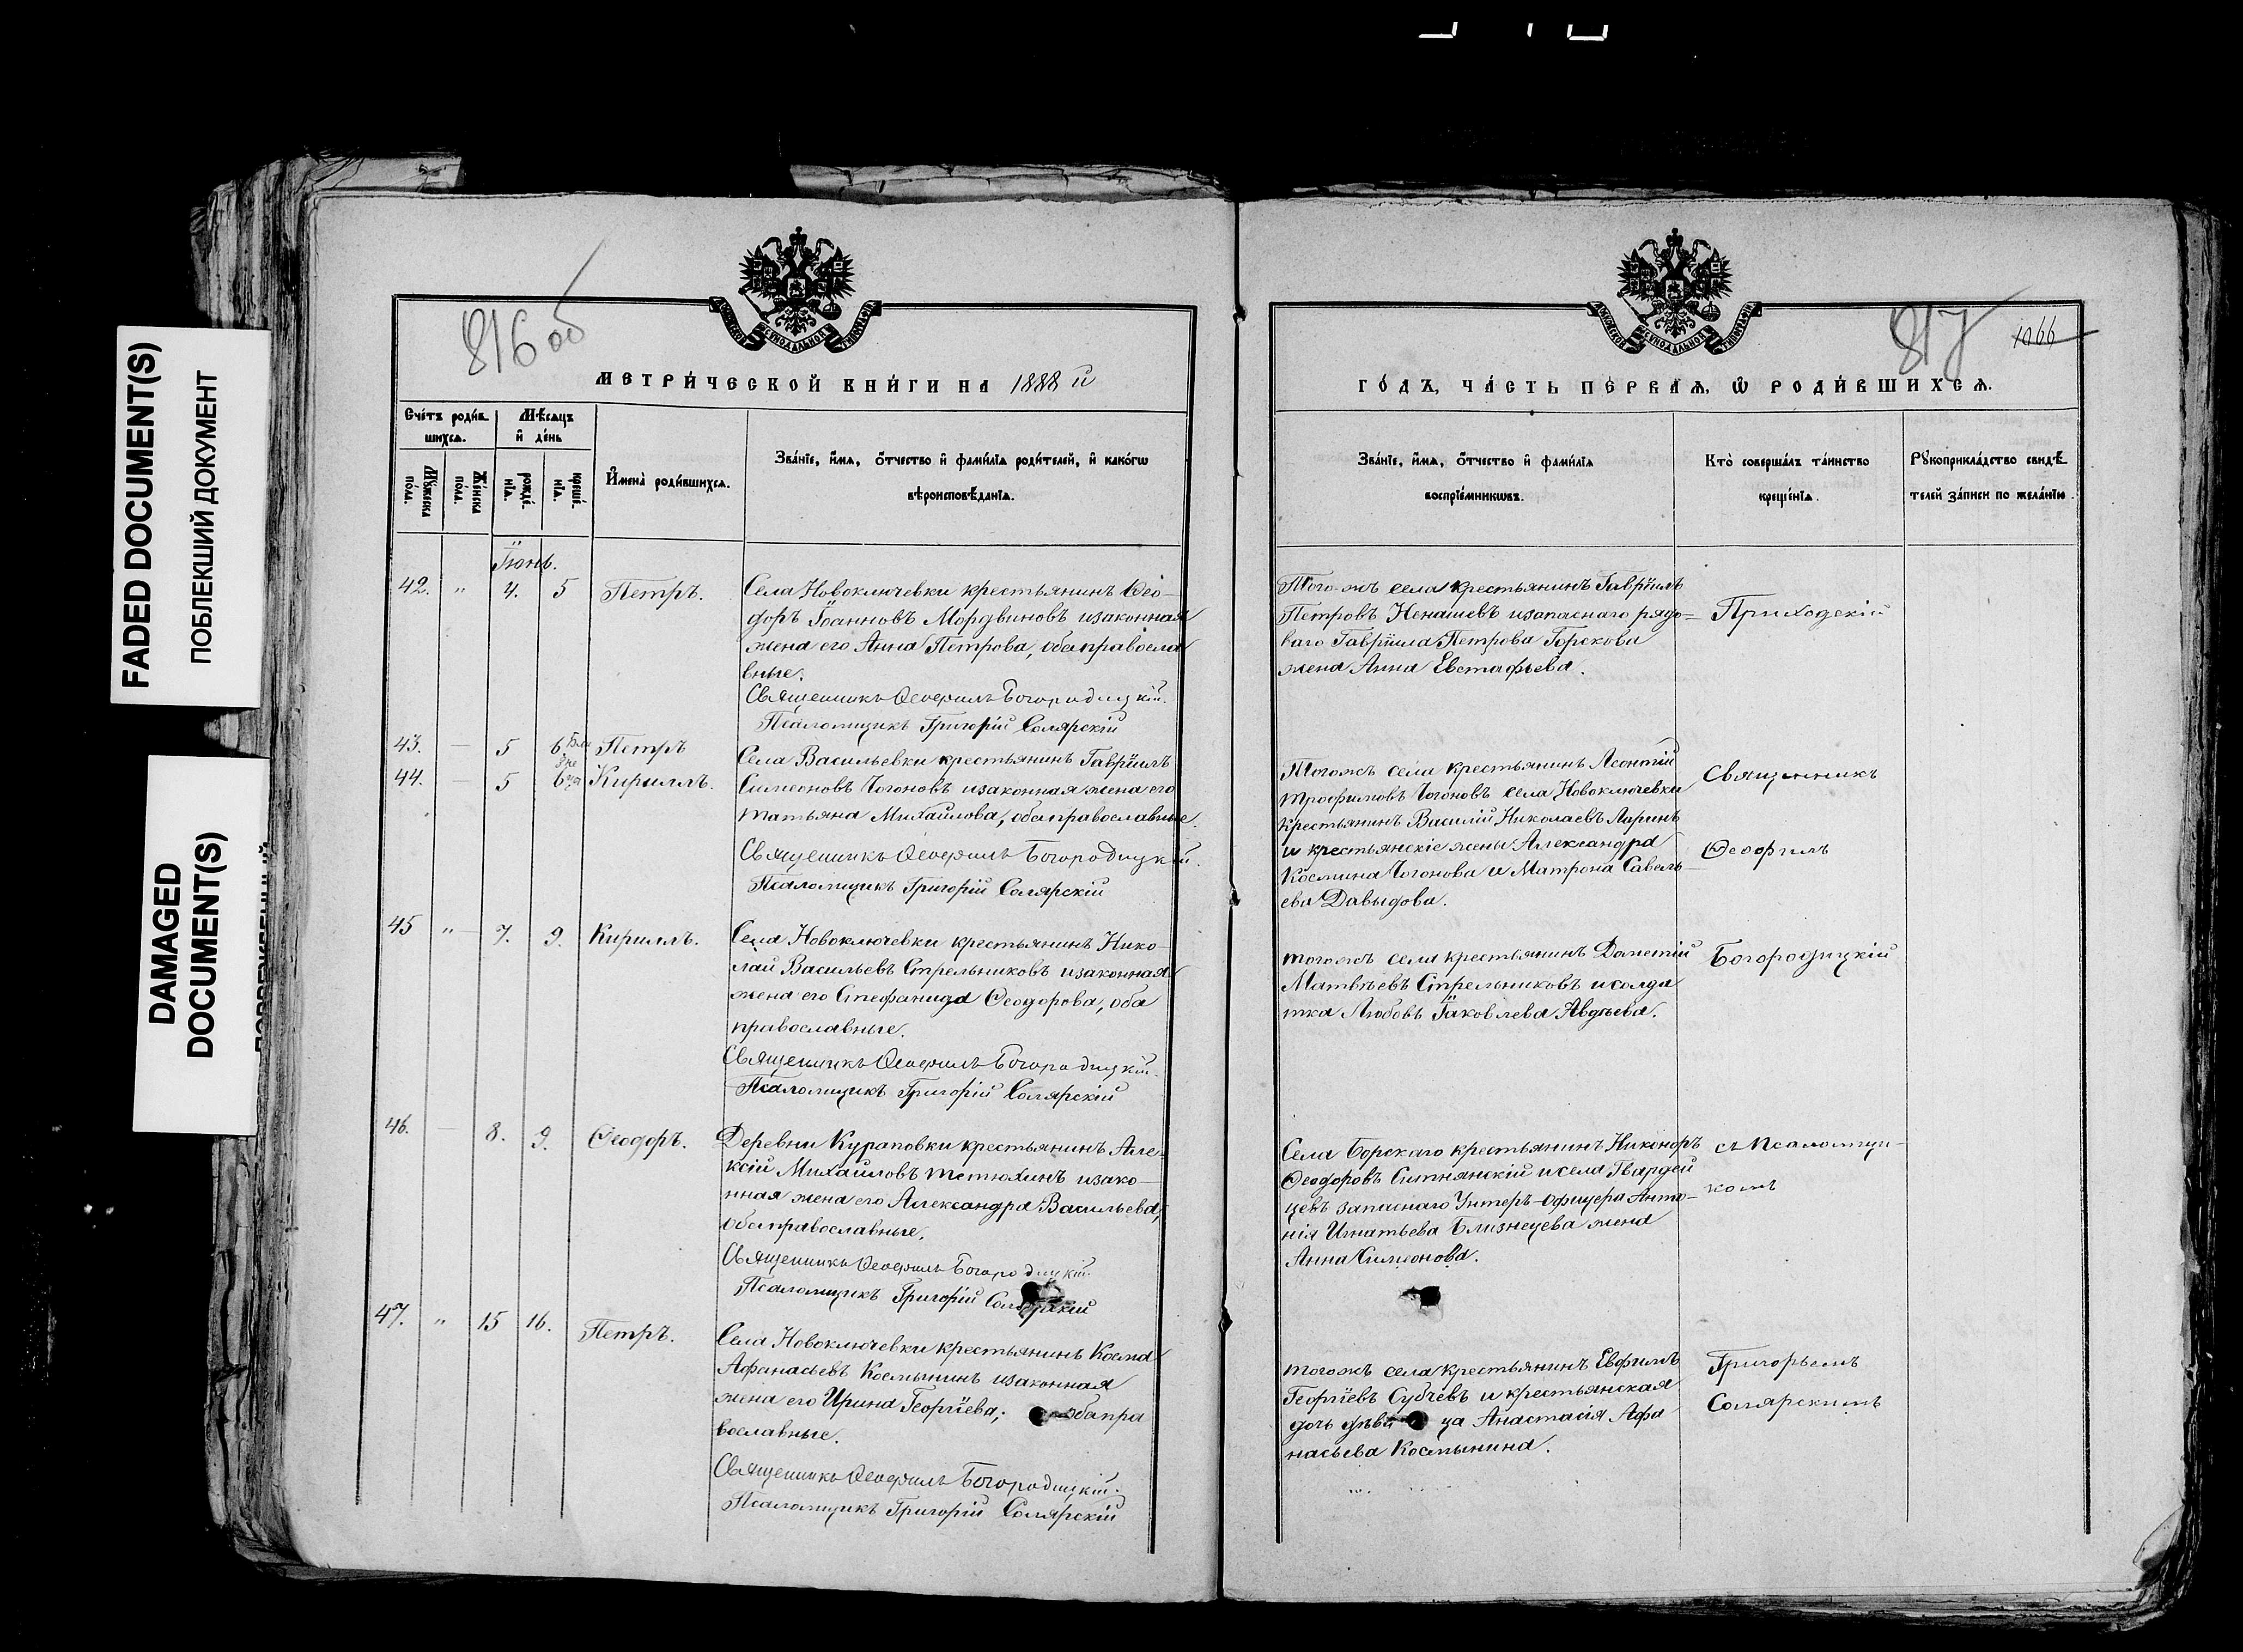 FADED DOCUMENT(S)
ПОБЛЕКШИЙ ДОКУМЕНТ
DAMAGED
DOCUMENT(S)
816 об
МЕТРИ́ЧЕСКОЙ КНИ́ГИ НА 1888 й
Сче́тъ роди́в
шихся.
Мѣ́сяцъ
и҆ де́нь
Мꙋ́жеска
по́ла.
Же́нска
по́ла.
рожде́-
нїѧ.
креще́-
нїѧ.
И҆мена̀ роди́вшихсѧ.
Зва́нїе, и҆́мѧ, ѻ҆́тчество и҆ фами́лїѧ роди́телей, и҆ како́гѡ
вѣроисповѣ́данїѧ.
Іюнь.
42. " 4. 5 Петръ.
Села Новоключевки крестьянинъ Ѳео-
доръ Іоанновъ Мордвиновъ и законная
жена его Анна Петрова, оба правосла
вные.
Священникъ Ѳеофилъ Богородицкій.
Псаломщикъ Григорій Солярскій
43. — 5 6 Петръ
44. — 5 6 Кириллъ.
Села Васильевки крестьянинъ Гавріилъ
Симеоновъ Чогоновъ и законная жена его
Татьяна Михайлова, оба православные.
Священникъ Ѳеофилъ Богородицкій.
Псаломщикъ Григорій Солярскій
45 " 7. 9. Кириллъ.
Села Новоключевки крестьянинъ Нико-
лай Васильевъ Стрельниковъ и законная
жена его Стефанида Ѳеодорова, оба
православные.
Священникъ Ѳеофилъ Богородицкій.
Псаломщикъ Григорій Солярскій
46. — 8. 9. Ѳеодоръ.
Деревни Кураповки крестьянинъ Але-
ксій Михайловъ Тетюхинъ и зако-
нная жена его Александра Васильева,
оба православные.
Священникъ Ѳеофилъ Богородицкій.
Псаломщикъ Григорій Солярскій
47. " 15 16. Петръ.
Села Новоключевки крестьянинъ Косма
Афанасьевъ Космынинъ и законная
жена его Ирина Георгіева; оба пра
вославные.
Священникъ Ѳеофилъ Богородицкій.
Псаломщикъ Григорій Солярскій
817
1066
ГО́ДЪ, ЧА́СТЬ ПЕ́РВАѦ, Ѡ҆ РОДИ́ВШИХСѦ.
Зва́нїе, и҆́мѧ, ѻ҆́тчество и҆ фами́лїѧ
воспрїе́мникѡвъ.
Кто̀ соверша́лъ та́инство
креще́нїѧ.
Рꙋкоприкла́дство свидѣ́-
телей за́писи по жела́нїю.
Того-жъ села крестьянинъ Гавріилъ
Петровъ Ненашевъ и запаснаго рядо-
ваго Гавріила Петрова Горскова
жена Анна Евстафьева.
Приходскій
Того жъ села крестьянинъ Леонтій
Трофимовъ Чогоновъ села Новоключевки
крестьянинъ Василій Николаевъ Ларинъ
и крестьянскіе жены Александра
Космина Чогонова и Матрона Савель-
ева Давыдова.
Священникъ
Ѳеофилъ
того жъ села крестьянинъ
Матвѣевъ Стрельниковъ и солда
тка Любовь Іаковлева Авдѣева.
Богородицкій
Села Борскаго крестьянинъ Никоноръ
Ѳеодоровъ Ситнянскій и села Гвардей
цевъ запаснаго Унтеръ-Офицера Анто-
нія Игнатьева Близнецева жена
Анна Симеонова.
съ Псаломщи-
комъ
того жъ села крестьянинъ Евфимъ
Георгіевъ Субчевъ и крестьянская
дочь дѣви ца Анастасія Афа
насьева Космынина.
Григорьемъ
Солярскимъ